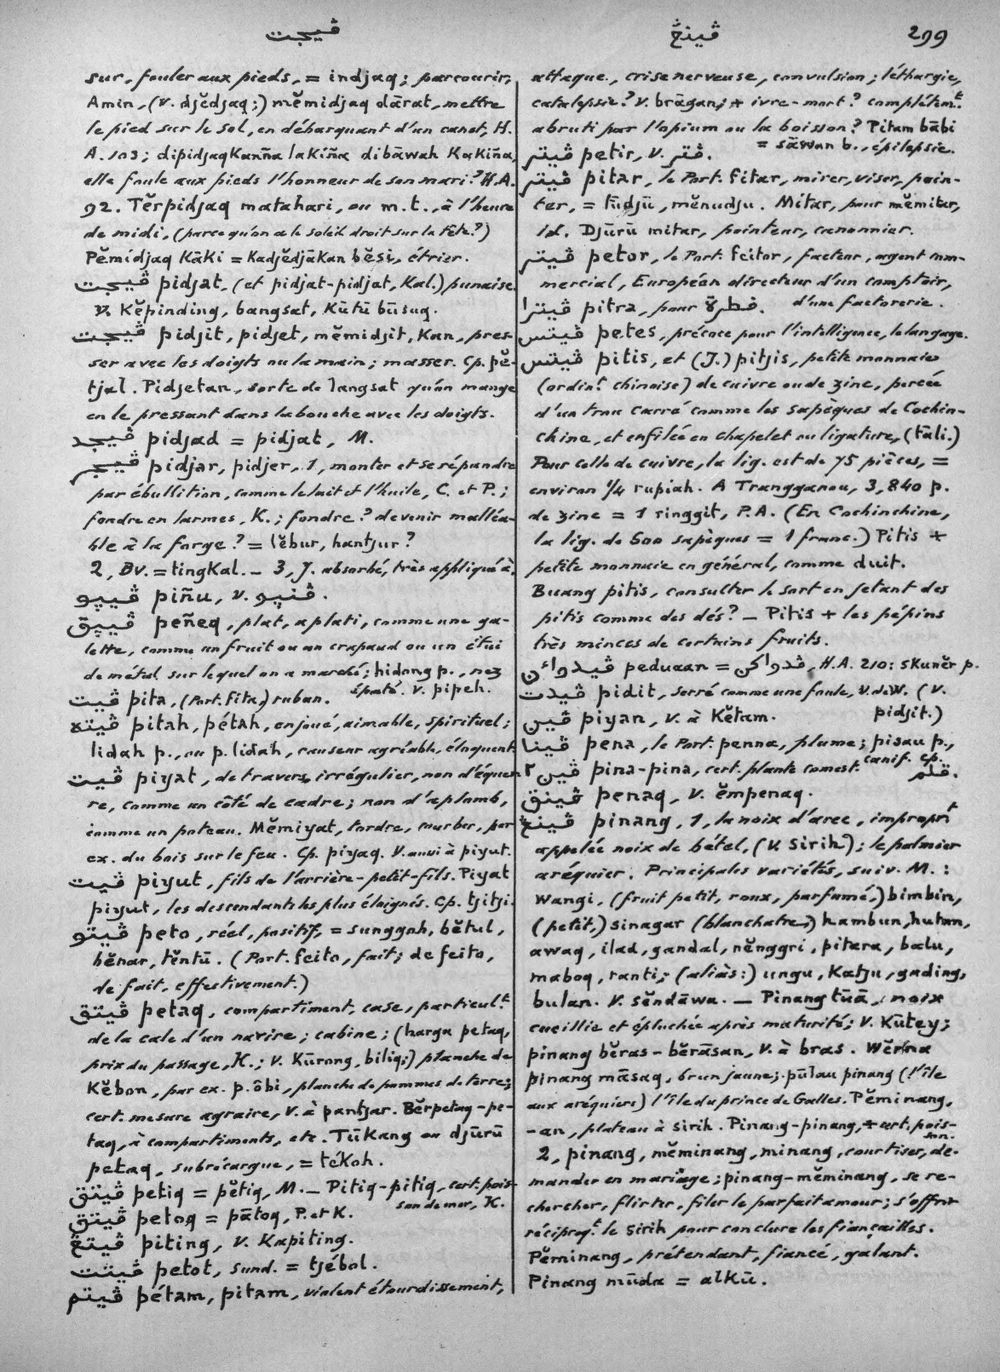 ڤيجت
ڤينڠ
299
sur, fouler aux pieds, = indjaq; parcourir,
Amin, (v. djĕdjaq;) mĕmidjaq dārat, mettre
le pied sur le sol, en débarquant d'un canot, H.
A. 103; dipidjaq Kanña la Kiña di bāwah Ka Kiña,
elle foule aux pieds l'honneur de son mari? H.A.
92. Tĕrpidjaq matahari, ou m. t., à l'heure
de midi, (parce qu'on a le soleil droit sur la tête?)
Pĕmidjaq Kāki = Kadjĕdjākan bĕsi, étrier.
ڤيجت pidjat, (et pidjat-pidjat, Kal.) punaise.
v. Kĕpinding, bangsat, Kūtū būsuq.
ڤيجت pidjit, pidjet, mĕmidjit, Kan, pres-
ser avec les doigts ou la main; masser. Cp. pĕ-
tjal. Pidjetan, sorte de langsat qu'on mange
en le pressant dans la bouche avec les doigts.
ڤيجد pidjad = pidjat, M.
ڤيجر pidjar, pidjer, 1, monter et se répandre
par ébullition, comme le lait et l'huile, C. et P.;
fondre en larmes, K.; fondre? devenir malléa-
ble à la forge? = lĕbur, hantjur?
2, Bv. = tingKal. — 3, J. absorbé, très appliqué à.
ڤيڽو piñu, v. ڤنيو.
ڤيڽق peñeq, plat, aplati, comme une ga-
lette, comme un fruit ou un crapaud ou un étui
de métal sur lequel on a marché; hidong p., nez
épaté. v. pipeh.
ڤيت pita, (Port. fita,) ruban.
ڤيته pitah, pétah, enjoué, aimable, spirituel;
lidah p., ou p. lidah, causeur agréable, éloquent.
ڤيت piyat, de travers, irrégulier, non d'équer-
re, comme un côté de cadre; non d'aplomb,
comme un poteau. Mĕmiyat, tordre, courber, par
ex. du bois sur le feu. Cp. piyaq. V. aussi à piyut.
ڤيت piyut, fils de l'arrière-petit-fils. Piyat
piyut, les descendants les plus éloignés. Cp. tjitji.
ڤيتو peto, réel, positif, = sunggoh, bĕtul,
bĕnar, tĕntū. (Port. feito, fait; de feito,
de fait, effectivement.)
ڤيتق petaq, compartiment, case, particult
de la cale d'un navire; cabine; (harga petaq,
prix du passage, K.; V. Kūrong, biliq;) planche de
Kĕbon, par ex. p. ôbi, planche de pommes de terre;
cert. mesure agraire, V. à pantjar. Bĕrpetaq-pe-
taq, à compartiments, etc. Tūkang ou djūrū
petaq, subrécargue, = tékoh.
ڤيتق petiq = pĕtiq, M. — Pitiq-pitiq, cert. pois-
son de mer, K.
ڤيتق petoq = pātoq, P. et K.
ڤيتڠ piting, v. Kapiting.
ڤيتت petot, Sund. = tjébol.
ڤيتم pétam, pitam, violent étourdissement,
attaque, crise nerveuse, convulsion; léthargie,
catalepsie? V. brāgan; + ivre-mort? complétemt
abruti par l'opium ou la boisson? Pitam bābi
= sāwan b., épilepsie.
ڤيتر petir, v. ڤتر.
ڤيتر pitar, le Port. fitar, mirer, viser, poin-
ter, = tūdjū, mĕnudju. Mitar, pour mĕmitar,
id. Djūrū mitar, pointeur, canonnier.
ڤيتر petor, le Port. feitor, facteur, agent com-
mercial, Européen directeur d'un comptoir,
d'une factorerie.
ڤيترا pitra, pour فطرة.
ڤيتس petes, précoce pour l'intelligence, le langage.
ڤيتس pitis, et (J.) pitjis, petite monnaie
(ordint chinoise) de cuivre ou de zinc, percée
d'un trou carré comme les sapèques de Cochin-
chine, et enfilée en chapelet ou ligature, (tāli.)
Pour celle de cuivre, la lig. est de 75 pièces, =
environ 1/4 rupiah. A Trangganou, 3,840 p.
de zinc = 1 ringgit, P.A. (En Cochinchine,
la lig. de 600 sapèques = 1 franc.) Pitis +
petite monnaie en général, comme duit.
Buang pitis, consulter le sort en jetant des
pitis comme des dés? — Pitis + les pépins
très minces de certains fruits.
ڤيدوان peduaan = ڤدواكن, H.A. 210: sKunĕr p.
ڤيدت pidit, serré comme une foule, V. de W. (V.
pidjit.)
ڤين piyan, v. à Kĕtam.
ڤينا pena, le Port. penna, plume; pisau p.,
canif. Cp. قلم.
ڤين٢ pina-pina, cert. plante comest.
ڤينق penaq, v. ĕmpenaq.
ڤينڠ pinang, 1, la noix d'arec, impropt
appelée noix de bétel, (V. Sirih); le palmier
aréquier. Principales variétés, suiv. M.:
wangi, (fruit petit, roux, parfumé,) bimbin,
(petit,) sinagar (blanchatre,) hambun, hutan,
awaq, ilad, gandal, nĕnggri, pitara, balu,
maboq, ranti; (aliàs:) ungu, Katju, gading,
bulan. V. sĕndāwa. — Pinang tūā, noix
cueillie et épluchée après maturité; V. Kūtey;
pinang bĕras-bĕrāsan, V. à bras. Wĕrna
pinang māsaq, brun jaune; pūlau pinang (l'île
aux aréquiers) l'île du prince de Galles. Pĕminang,
-an, plateau à sirih. Pinang-pinang, + cert. pois-
son.
2, pinang, mĕminang, minang, courtiser, de-
mander en mariage; pinang-mĕminang, se re-
chercher, flirter, filer le parfait amour; s'offrir
réciproqt le sirih pour conclure les fiançailles.
Pĕminang, prétendant, fiancé, galant.
Pinang mūda = alKū.